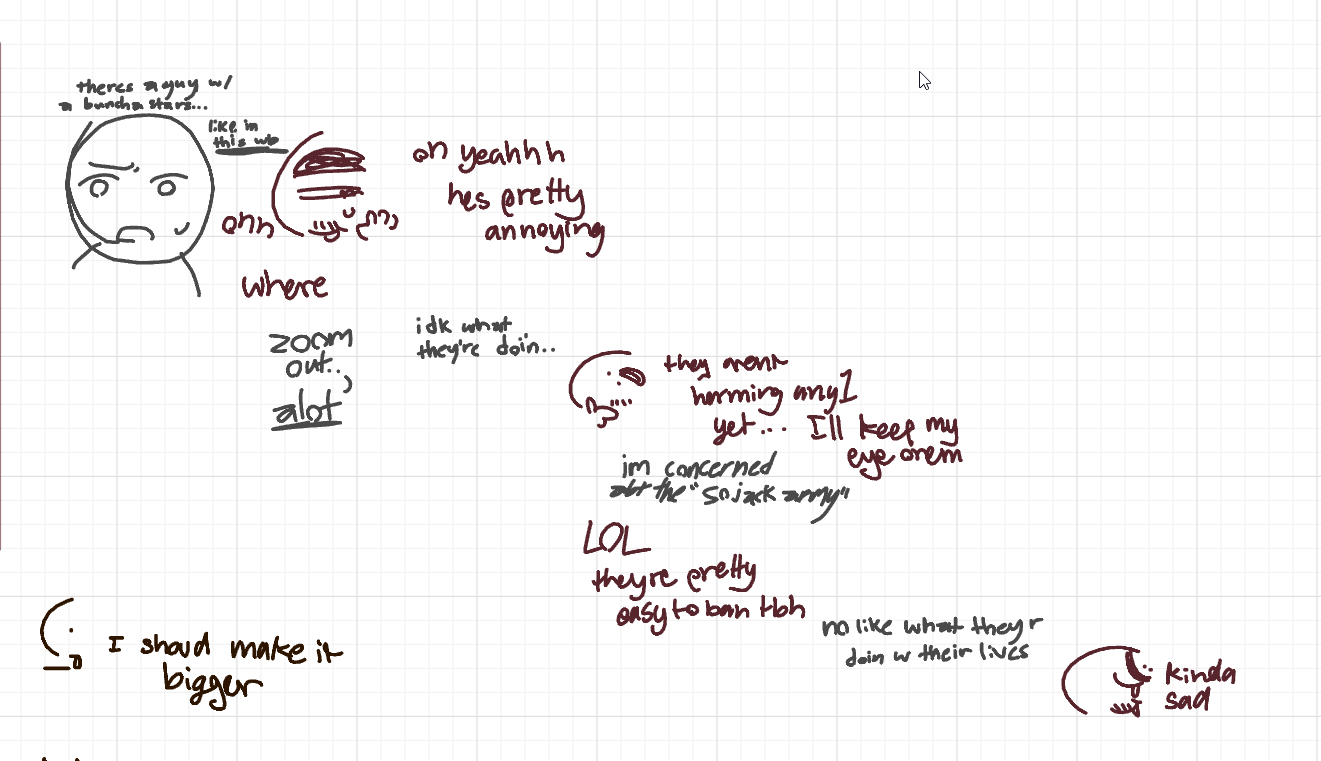 theres a guy w/
a buncha stars...
like in
this wb
ohh
oh yeahhh
hes pretty
annoying
where
zoom
out..
alot
idk what
they're doin..
they arent
harming any1
yet... I'll keep my
eye onem
im concerned
abt the "sojack army"
LOL
theyre pretty
easy to ban tbh
no like what they r
doin w their lives
kinda
sad
I shoud make it
bigger